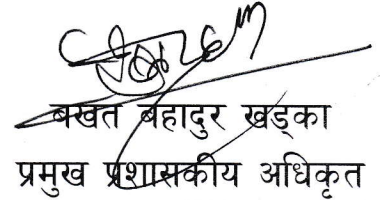 बखत बहादुर खड्का
प्रमुख प्रशासकीय अधिकृत